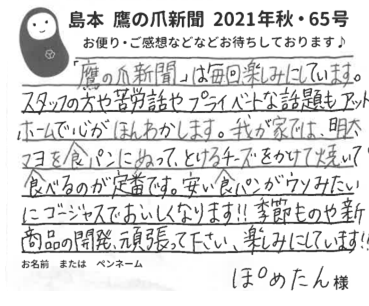 島本 鷹の爪新聞 2021年秋・65号
お便り・ご感想などなどお待ちしております♪
「鷹の爪新聞」は毎回楽しみにしています。
スタッフの方や苦労話やプライベートな話題もアット
ホームで心がほんわかします。我が家では、明太
マヨを食パンにぬって、とけるチーズをかけて焼いて
食べるのが定番です。安い食パンがウソみたい
にゴージャスでおいしくなります!!季節ものや新
商品の開発、頑張って下さい、楽しみにしています!!
お名前 または ペンネーム
ぽめたん様